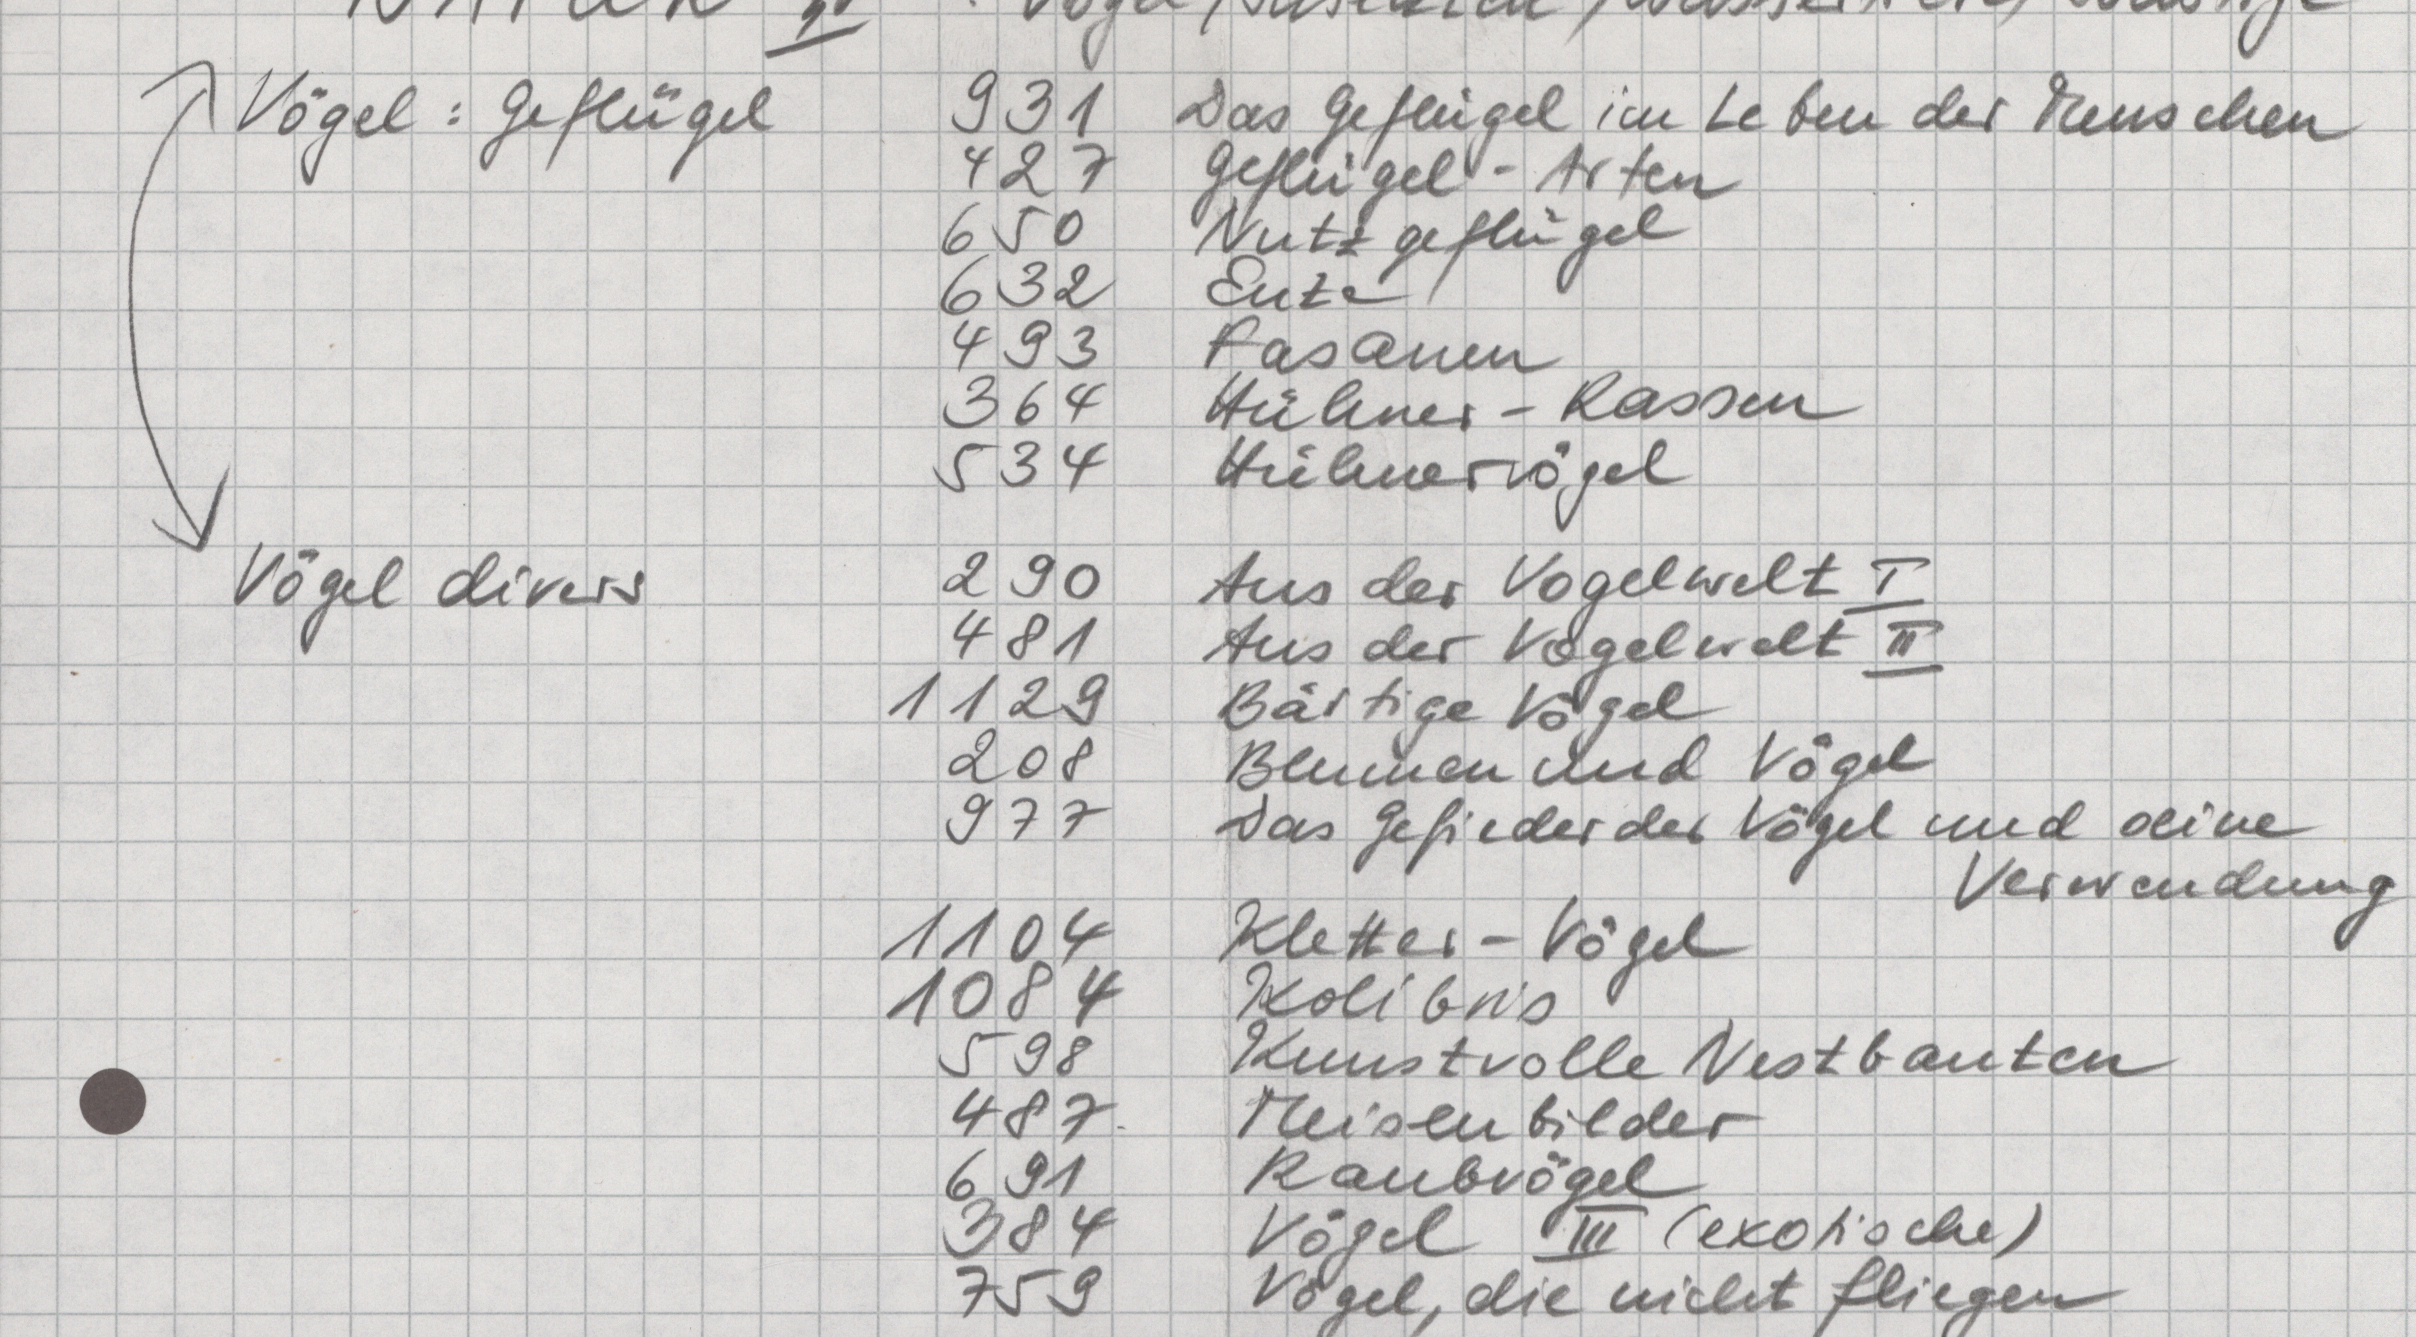 NATUR II : Vögel / Insekten / Wassertiere / Sonstige
Vögel : Geflügel 931 Das Geflügel im Leben der Menschen
427 Geflügel - Arten
650 Nutzgeflügel
632 Ente
493 Fasanen
364 Hühner - Rassen
534 Hühnervögel
Vögel divers 290 Aus der Vogelwelt I
481 Aus der Vogelwelt II
1129 Bärtige Vögel
208 Blumen und Vögel
977 Das Gefieder der Vögel und seine
Verwendung
1104 Kletter - Vögel
1084 Kolibris
598 Kunstvolle Nestbauten
487 Meisenbilder
691 Raubvögel
384 Vögel III (exotische)
759 Vögel, die nicht fliegen